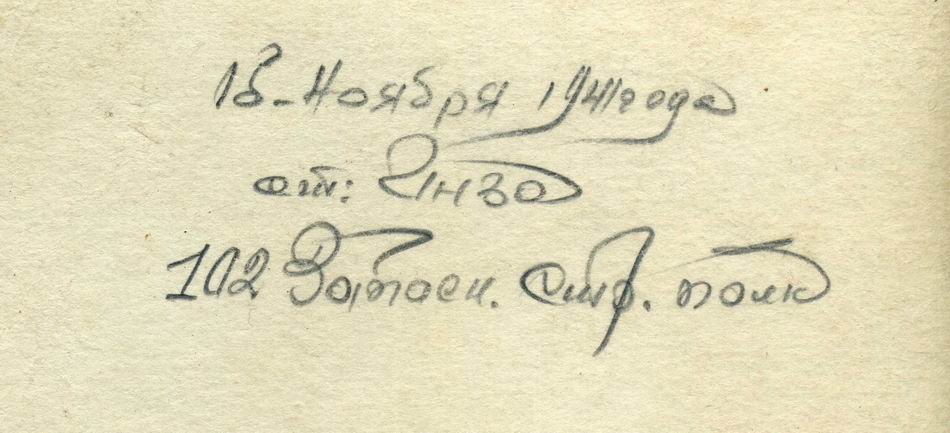 16-Ноября 1941 года
ст: Инза
102 Запасн. Стр. полк